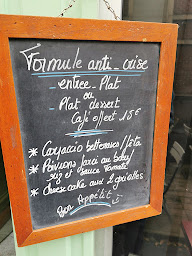 Formule anti-crise
entrée-Plat
ou
Plat dessert
Café offert 15€
* Carpaccio betteraves/féta
* Poivrons farci au bœuf
riz et sauce tomate
* Cheese cake aux 2 griottes
Bon Appétit